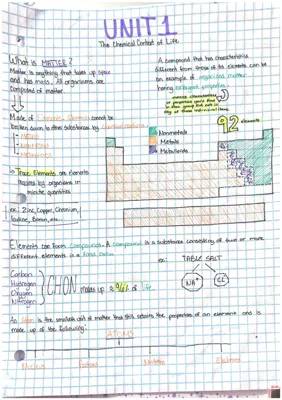 UNIT 1
The Chemical Context of Life
What is MATTER?
Matter is anything that takes up space
and has mass. All organisms are
composed of matter.
A compound that has characteristics
different from those of its elements can be
an example of organized matter
having emergent properties.
Made of
cannot be
broken down to other substances by chemical reactions
92 elements
Nonmetals
Metals
Metalloids
Trace Elements are elements
required by organisms in
minute quantities
ex: Zinc, Copper, Chromium,
Iodine, Boron, etc.
Elements can form compounds. A compound is a substance consisting of two or more
different elements in a fixed ratio.
ex: TABLE SALT
Na⁺ Cl⁻
Carbon
Hydrogen
Oxygen
Nitrogen
CHON makes up 96% of life
An atom is the smallest unit of matter that still retains the properties of an element and is
made up of the following:
ATOMS
Nucleus Protons Neutrons Electrons